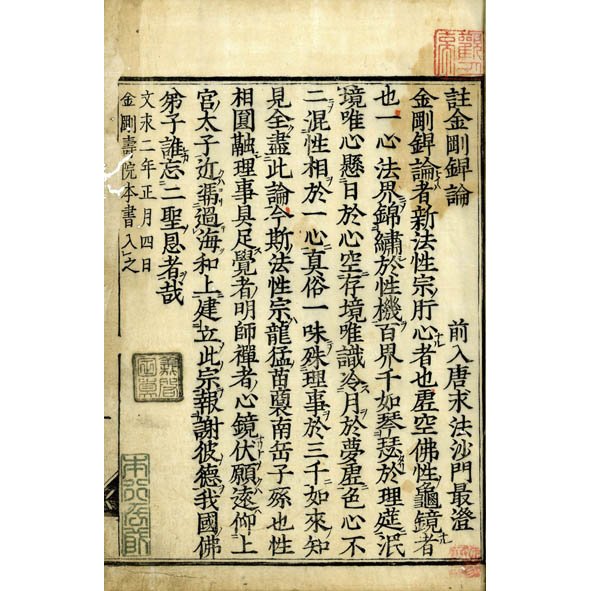 註金剛錍論
前入唐求法沙門最澄
金剛錍論者新法性宗肝心者也虛空佛性龜鏡者
也一心法界錦繡於性機百界千如琴瑟於理莚泯
境唯心懸日於心空存境唯識冷月於夢虛色心不
二混性相於一心真俗一味殊理事於三千如來知
見全盡此論今斯法性宗龍猛苗裔南岳子孫也性
相圓融理事具足覺者明師禪者心鏡伏願遠仰上
宮太子近遡過海和上建立此宗報謝彼德我國佛
弟子誰忘二聖恩者哉
文永二年正月四日
金剛壽院本書入之